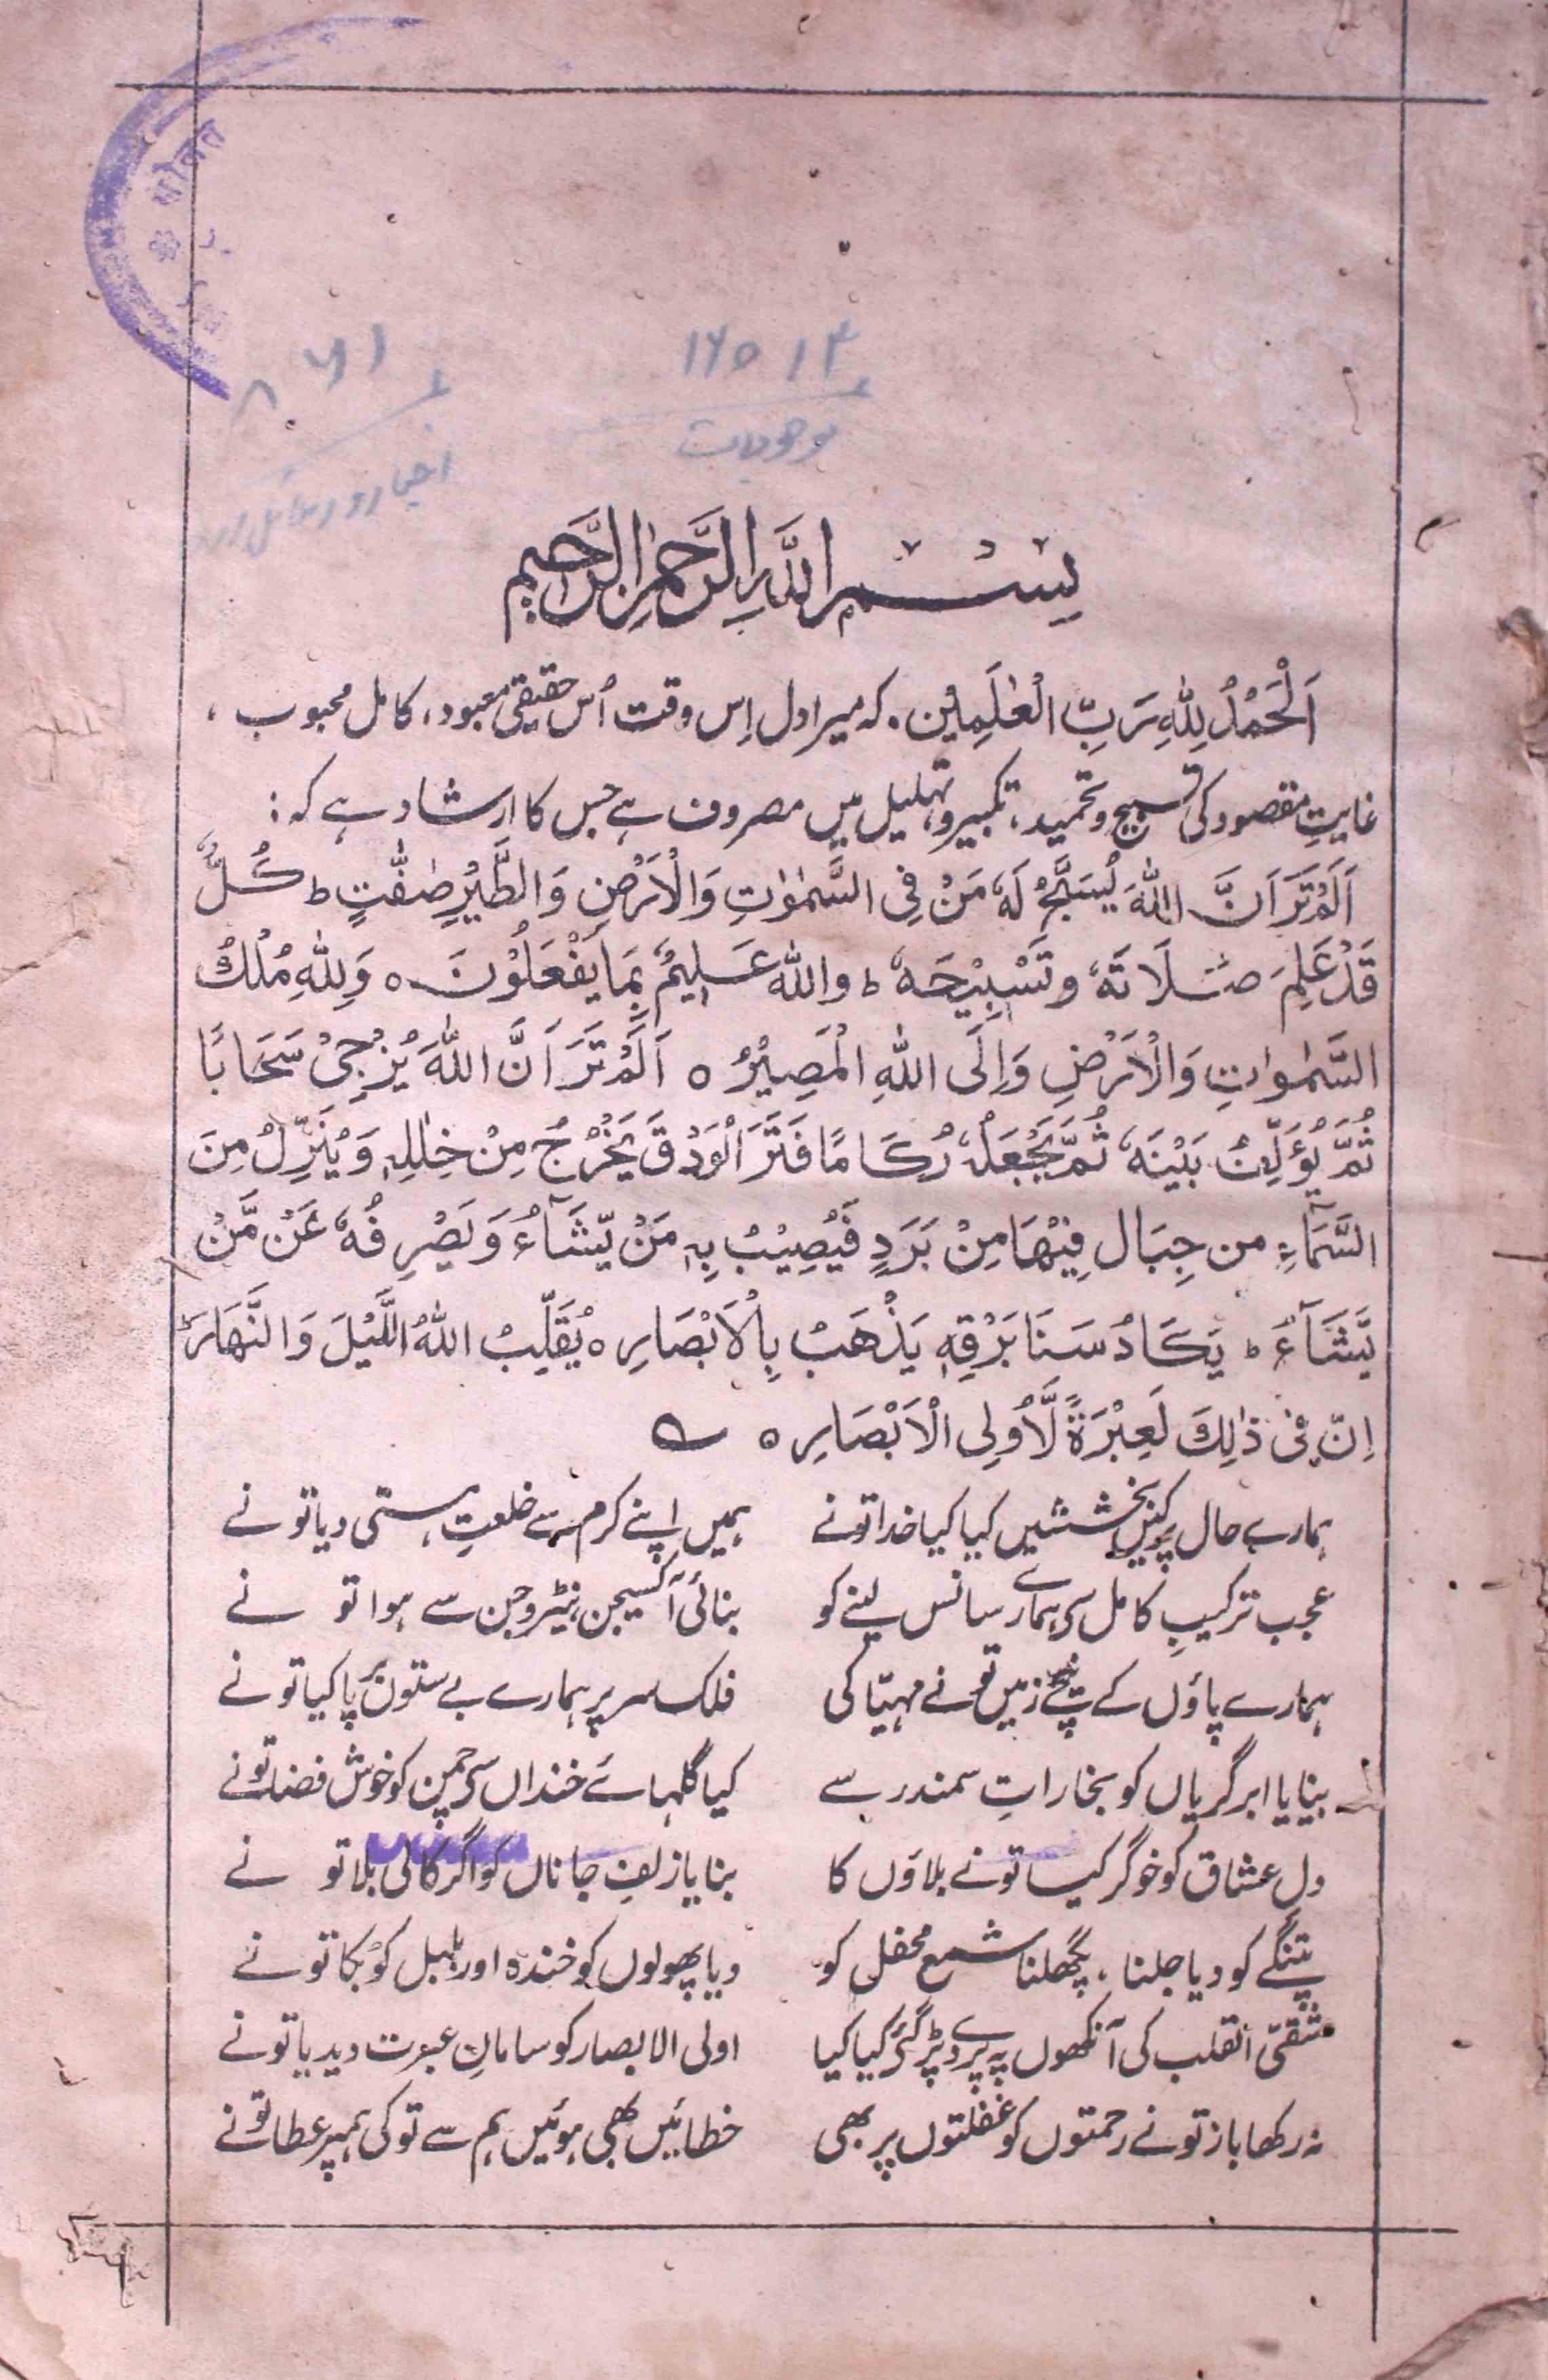 ۱۶۵۱۴
۸۷۱
بِسْمِ اللّٰهِ الرَّحْمٰنِ الرَّحِيْمِ
اَلْحَمْدُ لِلّٰهِ رَبِّ الْعٰلَمِيْن . کہ میرا دل اِس وقت اُس حقیقی معبود، کامل محبوب ،
غایتِ مقصود کی تسبیح و تحمید، تکبیر و تہلیل میں مصروف ہے جس کا ارشاد ہے کہ :
اَلَمْ تَرَ اَنَّ اللّٰهَ يُسَبِّحُ لَهٗ مَنْ فِی السَّمٰوٰتِ وَالْاَرْضِ وَالطَّيْرِ صٰفّٰتٍ ط كُلٌّ
قَدْ عَلِمَ صَلَاتَهٗ وتَسْبِيْحَهٗ ط والله عَلِيمٌ بِمَا يَفْعَلُوْنَ ه وَلِلّٰهِ مُلْكُ
السَّمٰوٰتِ وَالْاَرْضِ وَاِلَى اللّٰهِ الْمَصِيْرُ ه اَلَمْ تَرَ اَنَّ اللّٰهَ يُزْجِیْ سَحَابًا
ثُمَّ يُؤَلِّفُ بَيْنَهٗ ثُمَّ يَجْعَلُهٗ رُكَامًا فَتَرَ الْوَدْقَ يَخْرُجُ مِنْ خِلٰلِهٖ وَيُنَزِّلُ مِنَ
السَّمَآءِ من جِبَال فِيْهَا مِنْ بَرَدٍ فَيُصِيْبُ بِهٖ مَنْ يَّشَآءُ وَيَصْرِفُهٗ عَنْ مَّنْ
يَّشَآءُ ط يَكَادُ سَنَا بَرْقِهٖ يَذْهَبُ بِالْاَبْصَارِ ه يُقَلِّبُ اللّٰهُ الَّيْلَ وَالنَّهَارَ ط
اِنّ فِیْ ذٰلِكَ لَعِبْرَةً لَّاُولِی الْاَبْصَارِ ه
ہمارے حال پر کیں بخششیں کیا کیا خدا تونے ہمیں اپنے کرم سے خلعتِ ہستی دیا تو نے
عجب ترکیبِ کامل سی ہمارے سانس لینے کو بنائی آکسیجن، نیٹروجن سے ہوا تو نے
ہمارے پاؤں کے نیچے زمیں تو نے مہیّا کی فلک سر پر ہمارے بے ستوں برپا کیا تو نے
بنایا ابر گریاں کو بخاراتِ سمندر سے کیا گلہائے خنداں سی چمن کو خوش فضا تونے
دلِ عشاق کو خوگر کیا تونے بلاؤں کا بنایا زلفِ جاناں کو اگر کالی بلا تو نے
پتنگے کو دیا جلنا ، پگھلنا شمع محفل کو دیا پھولوں کو خندہ اور بلبل کو بُکا تو نے
شقیّ القلب کی آنکھوں پہ پردے پڑ گئے کیا کیا اولی الابصار کو سامانِ عبرت دیدیا تو نے
نہ رکھا باز تو نے رحمتوں کو غفلتوں پر بھی خطائیں بھی ہوئیں ہم سے تو کی ہمپر عطا تو نے